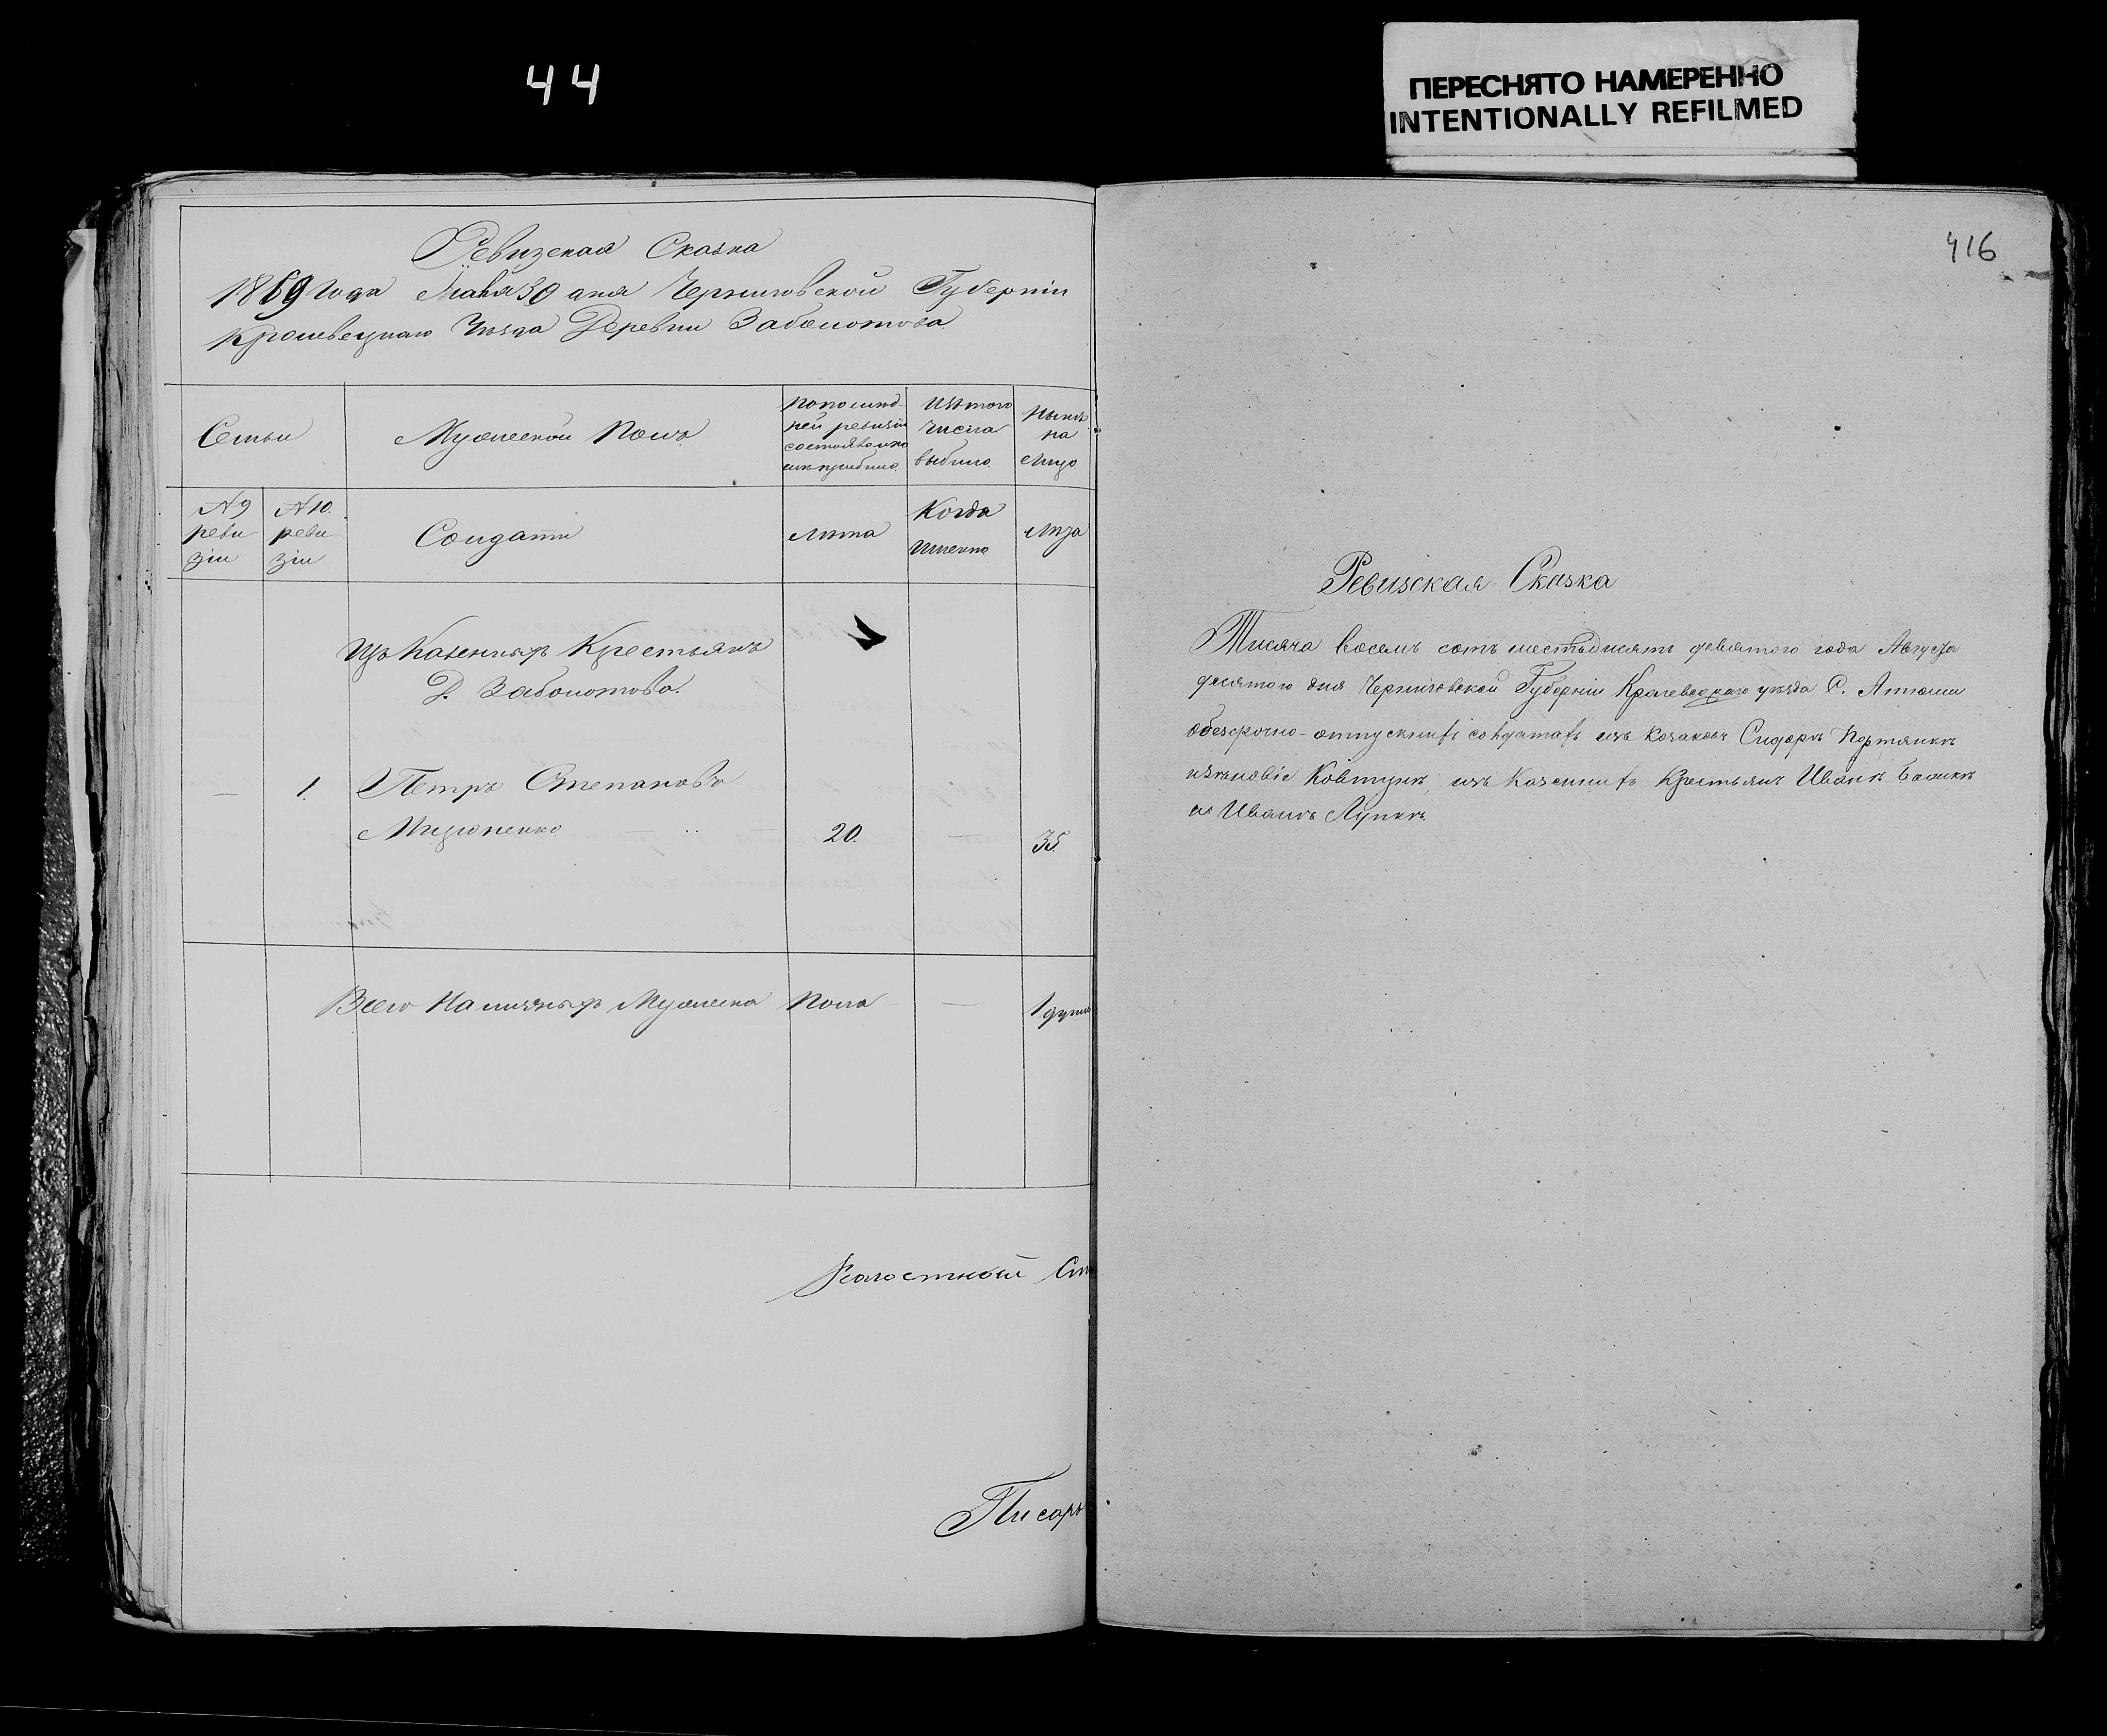 44
ПЕРЕСНЯТО НАМЕРЕННО
INTENTIONALLY REFILMED
Ревизская Сказка
1869 года Маия 30 дня Черниговской Губерніи
Кролевецкаго Уѣзда Деревни Заболотова
Семьи
Мужеской Полъ
По послѣд-
ней ревизіи
состояло или
послѣ прибыло
Изъ того
числа
выбыло
Нынѣ
на
Лицо
№ 9
реви
зіи
№ 10.
реви
зіи
Солдаты
Лѣта
Когда
Именно
Лѣта
Изъ Казенныхъ Крестьянъ
Д. Заболотова.
— 1. Петръ Степановъ
Мироненко — 20. — 35.
Всего Наличныхъ Мужеска Пола — 1 душа
Волостной Ст
Писарь
416
Ревизская Сказка
Тисяча восемъ сотъ шестьдисятъ девятого года Августа
десятого дня Черниговской Губерніи Кролевецкаго уѣзда С.
объ безсрочно-отпускныхъ солдатахъ изъ козаковъ Сидорѣ
Ковтунѣ, изъ Казенныхъ Крестьянъ Иванѣ
и Иванѣ Лупикѣ.